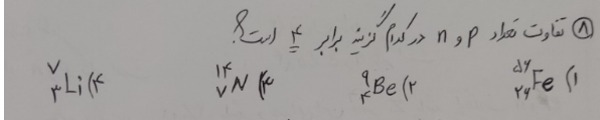 ۸) تفاوت تعداد p و n در کدام گزینه برابر ۴ است؟
۱) ⁵⁶₂₆Fe ۲) ⁹₄Be ۳) ¹⁴₇N ۴) ⁷₃Li